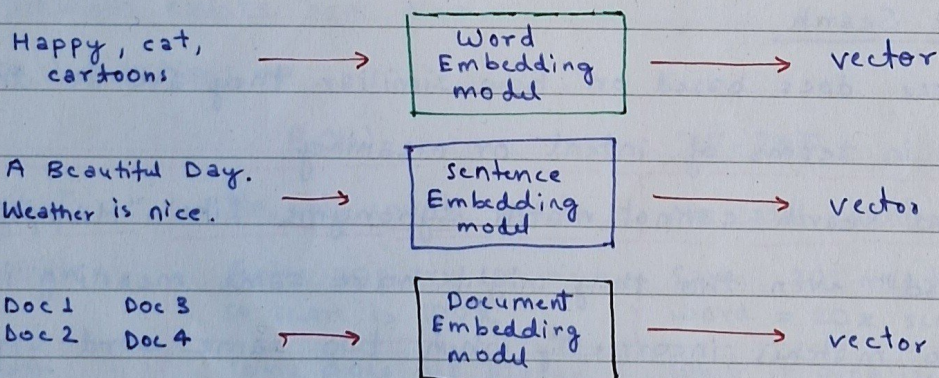 Happy, cat,
cartoons
Word
Embedding
model
vector
A Beautiful Day.
Weather is nice.
Sentence
Embedding
model
vector
Doc 1 Doc 3
Doc 2 Doc 4
Document
Embedding
model
vector